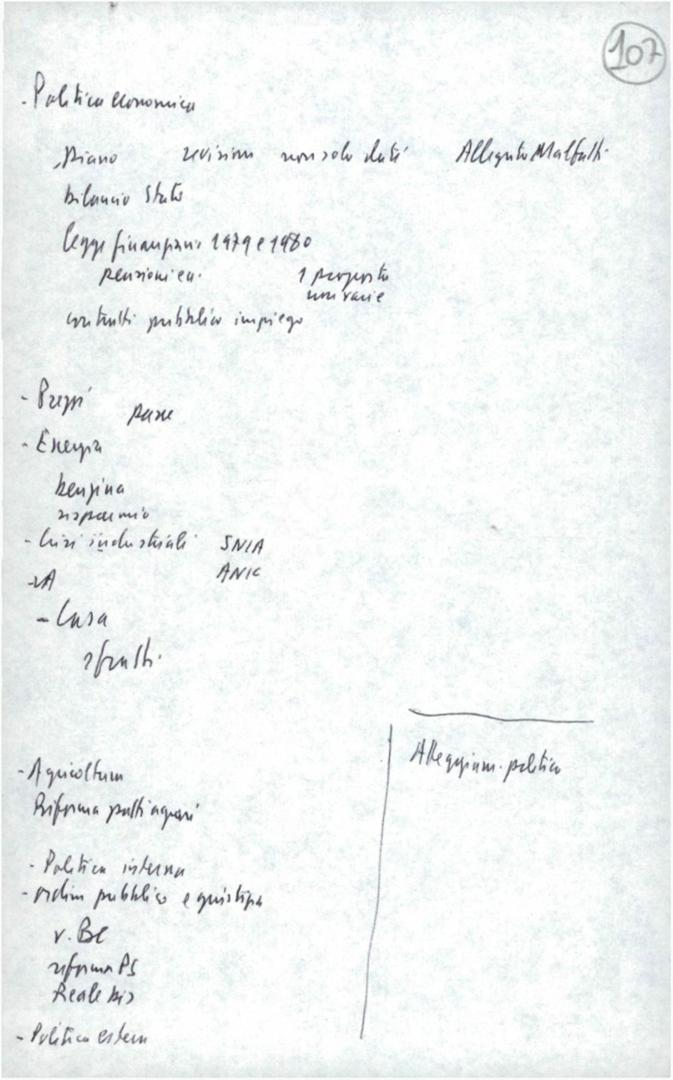 107
- Politica economica
Piano revisioni non solo date Allegato Malfatti
bilancio Stato
legge finanziaria 1979 e 1980
pensioni ecc. 1 proposta
non varie
contratti pubblico impiego
- Prezzi
pane
- Energia
benzina
risparmio
- Crisi industriali SNIA
ANIC
- Casa
sfratti
Atteggiam. politico
- Agricoltura
Riforma patti agrari
- Politica interna
- ordine pubblico e giustizia
v. Be
riforma PS
Reale bis
- Politica estera